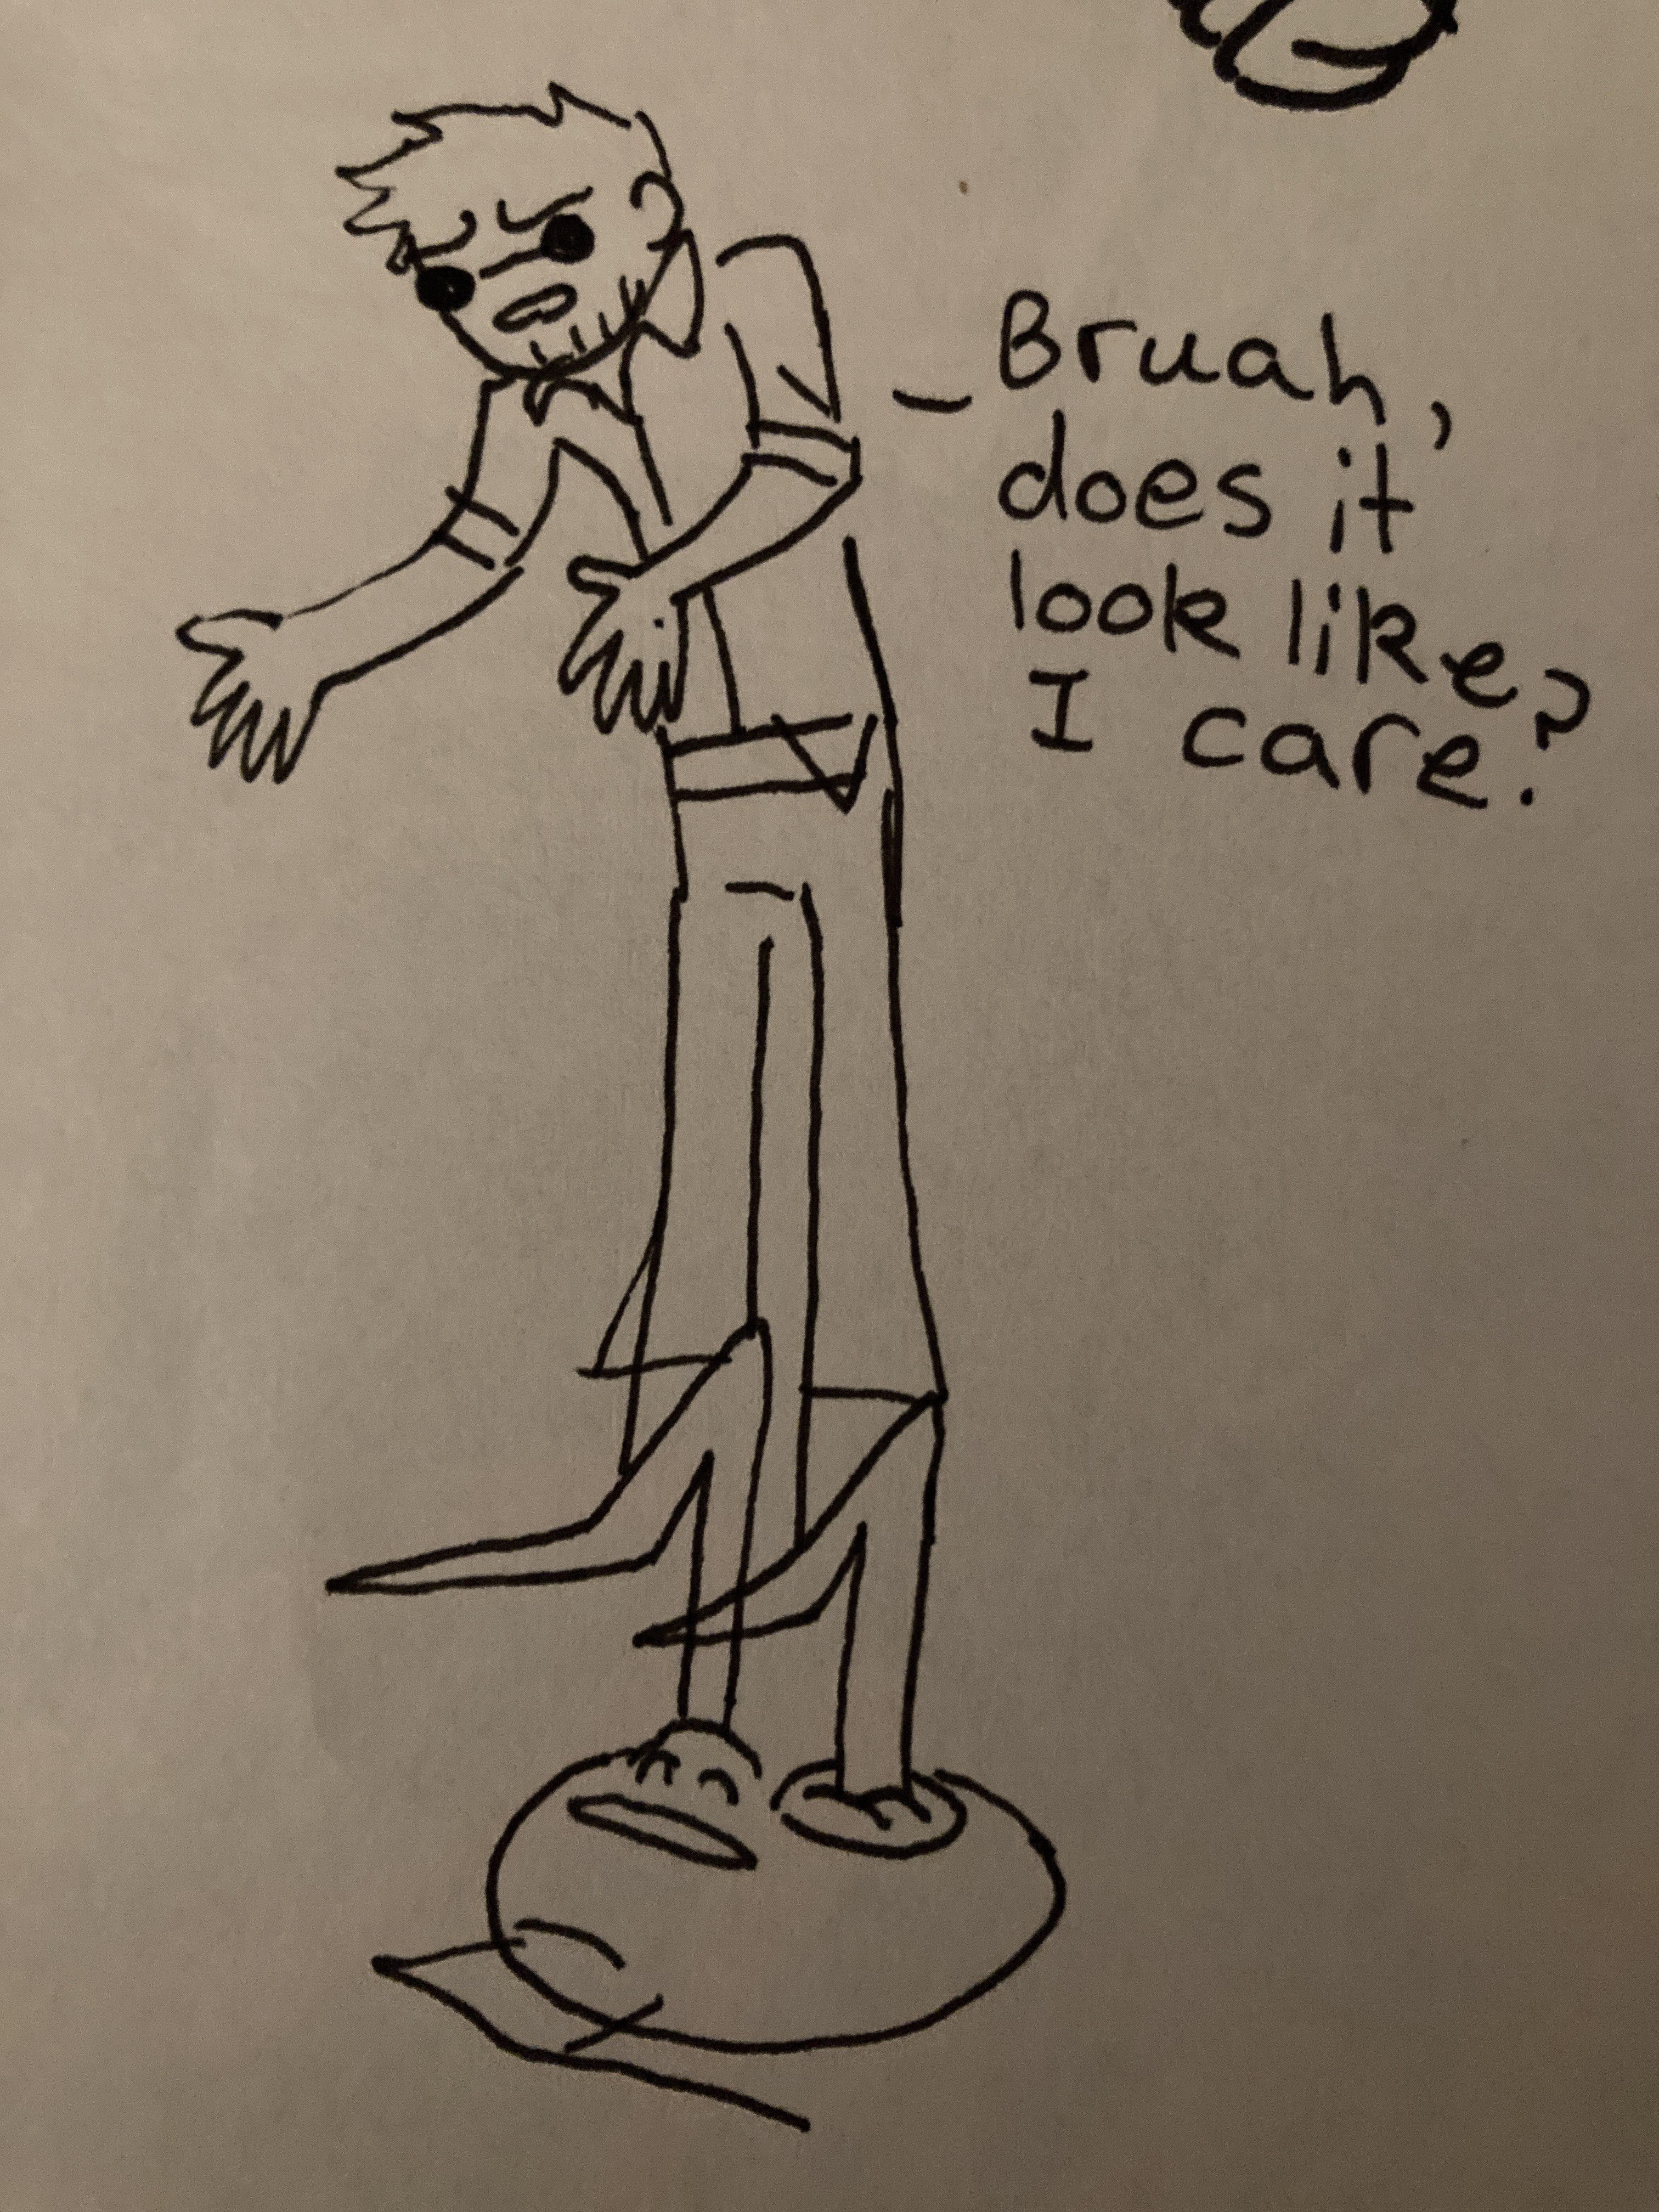 – Bruah,
does it
look like
I care?